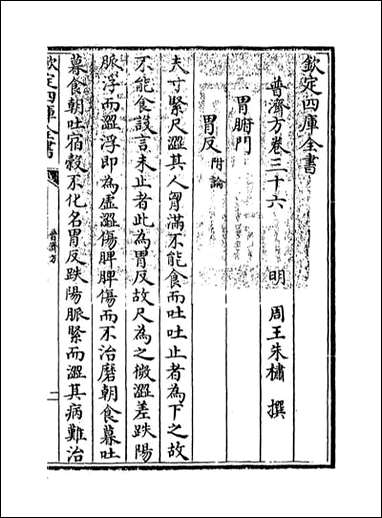 欽定四庫全書
普濟方卷三十六
明 周王朱橚 撰
胃腑門
胃反附論
夫寸緊尺澀其人胷滿不能食而吐吐止者為下之故
不能食設言未止者此為胃反故尺為之微澀差趺陽
脈浮而澀浮即為虛澀傷脾脾傷而不治磨朝食暮吐
暮食朝吐宿穀不化名胃反趺陽脈緊而澀其病難治
欽定四庫全書
普濟方